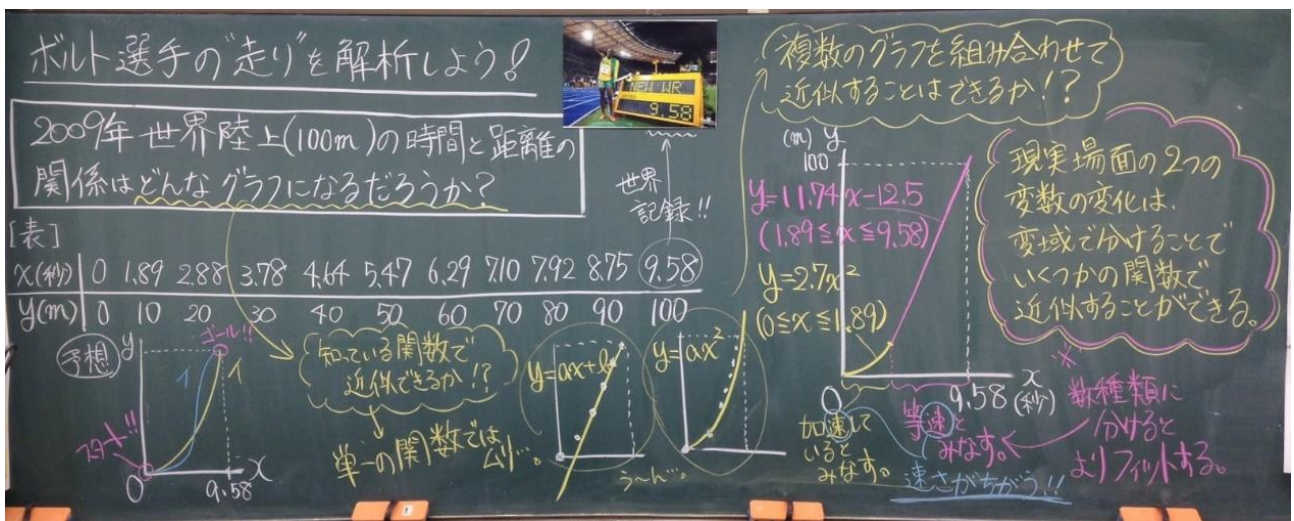 ボルト選手の"走り"を解析しよう!
2009年世界陸上(100m)の時間と距離の
関係はどんなグラフになるだろうか?
NEW WR
9.58
世界
記録!!
[表]
x(秒) 0 1.89 2.88 3.78 4.64 5.47 6.29 7.10 7.92 8.75 9.58
y(m) 0 10 20 30 40 50 60 70 80 90 100
予想
y
ゴール!!
スタート!!
O
9.58
x
知っている関数で
近似できるか!?
単一の関数では
ムリ…。
y=ax+b
y=ax²
う〜ん…。
複数のグラフを組み合わせて
近似することはできるか!?
(m) y
100
y=11.74x-12.5
(1.89≦x≦9.58)
y=2.7x²
(0≦x≦1.89)
O
9.58
x
(秒)
加速して
いると
みなす。
等速と
みなす。
速さがちがう!!
現実場面の2つの
変数の変化は、
変域で分けることで
いくつかの関数で
近似することができる。
※
数種類に
分けると
よりフィットする。